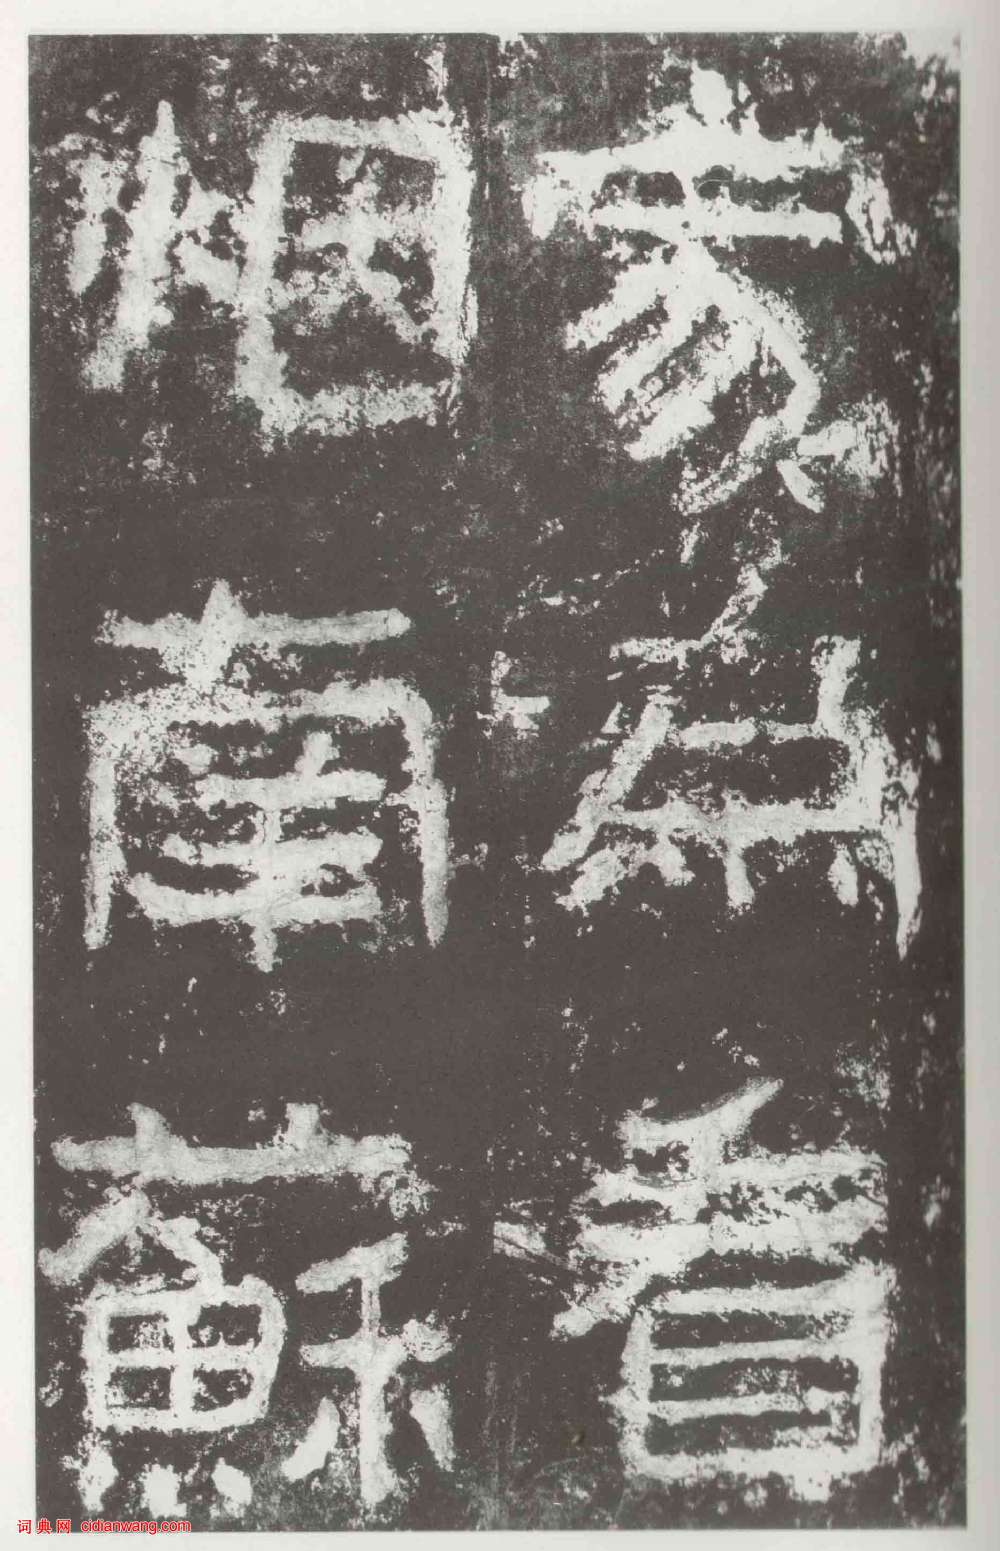 家看
烟南蘇
词典网 cidianwang.com